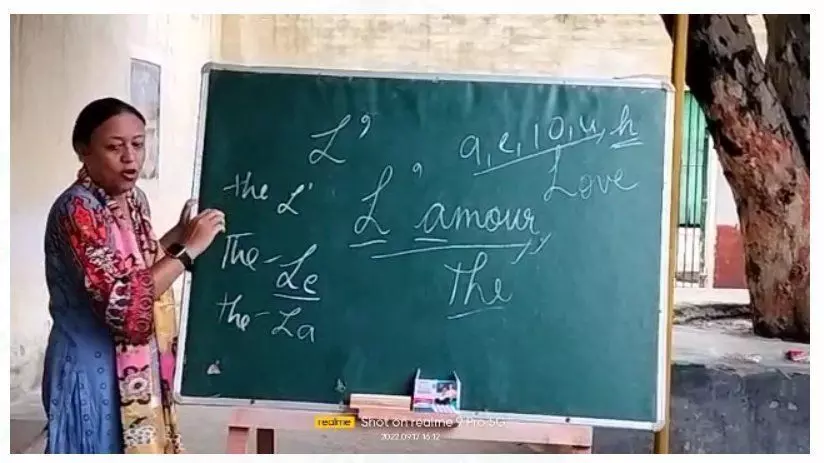 L' a, e, i o, u, h
the L' L'amour, Love
The - Le the''
the - La
realme Shot on realme 9 Pro 5G
2022.09.17 16:12